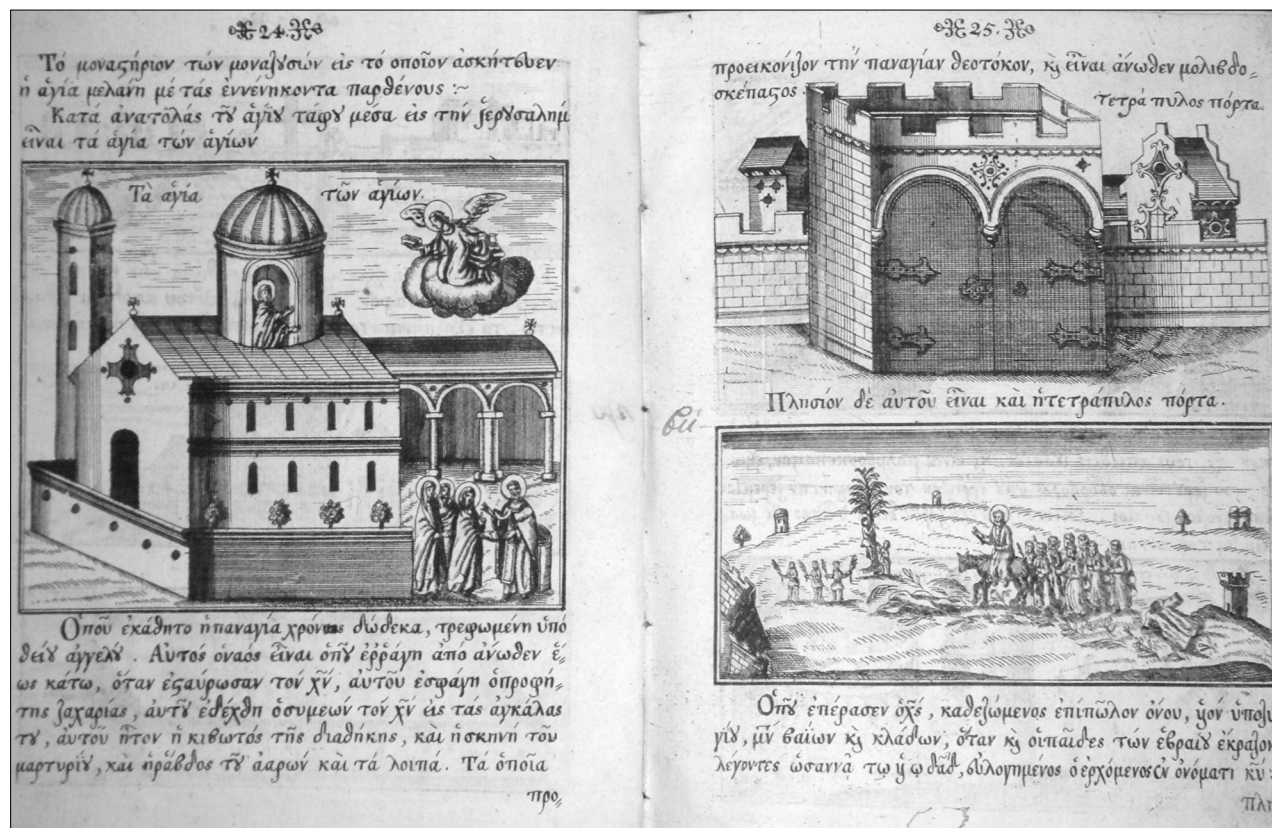 24.
Τό μοναστήριον τῶν μοναζουσῶν εἰς τό ὁποῖον ἀσκήτευεν
ἡ ἁγία μελάνη μέ τάς ἐννενήκοντα παρθένους :~
Κατά ἀνατολάς τοῦ ἁγίου τάφου μέσα εἰς τήν ἱερουσαλήμ
εἶναι τά ἅγια τῶν ἁγίων
Τὰ ἁγία τῶν ἁγίων.
Ὁποῦ ἐκάθητο ἡπαναγία χρόνους δώδεκα, τρεφωμένη ὑπό
θείου ἀγγέλου. Αὐτός ὁναός εἶναι ὁποῦ ἐρράγη ἀπο ἀνωθεν ἕ,,
ως κάτω, ὅταν ἐσταύρωσαν τόν χν, αὐτοῦ ἐσφάγη ὁπροφή,,
της ζαχαρίας, αὐτοῦ ἐδέχθη ὁσυμεών τόν χν εἰς τάς ἀγκάλας
του, αὐτοῦ ἦτον ἡ κιβωτός τῆς διαθήκης, καὶ ἡσκηνή τοῦ
μαρτυρίου, καὶ ἡράβδος τοῦ ἀαρών καὶ τά λοιπά. Τά ὁποῖα
προ,,
25.
προεικόνιζον τήν παναγίαν θεοτόκον, κὶ εἶναι ἀνωθεν μολιβδο,,
σκέπαστος
τετρά πυλος πόρτα
Πλησιόν δὲ αὐτοῦ εἶναι καὶ ἡτετράπυλος πόρτα.
βιί
Ὁποῦ ἐπέρασεν ὁχς, καθεζώμενος ἐπιπῶλον ὄνου, ὑον ὑποζυ
γίου, μν βαΐων κὶ κλάδων, ὅταν κὶ οἱπαῖδες τῶν ἑβραίου ἐκραζον
λέγοντες ὡσαννά τῳ ὑῳ δαδ, εὐλογημένος ὁ ἐρχόμενος ἐν ὀνόματι κυ:
πλη